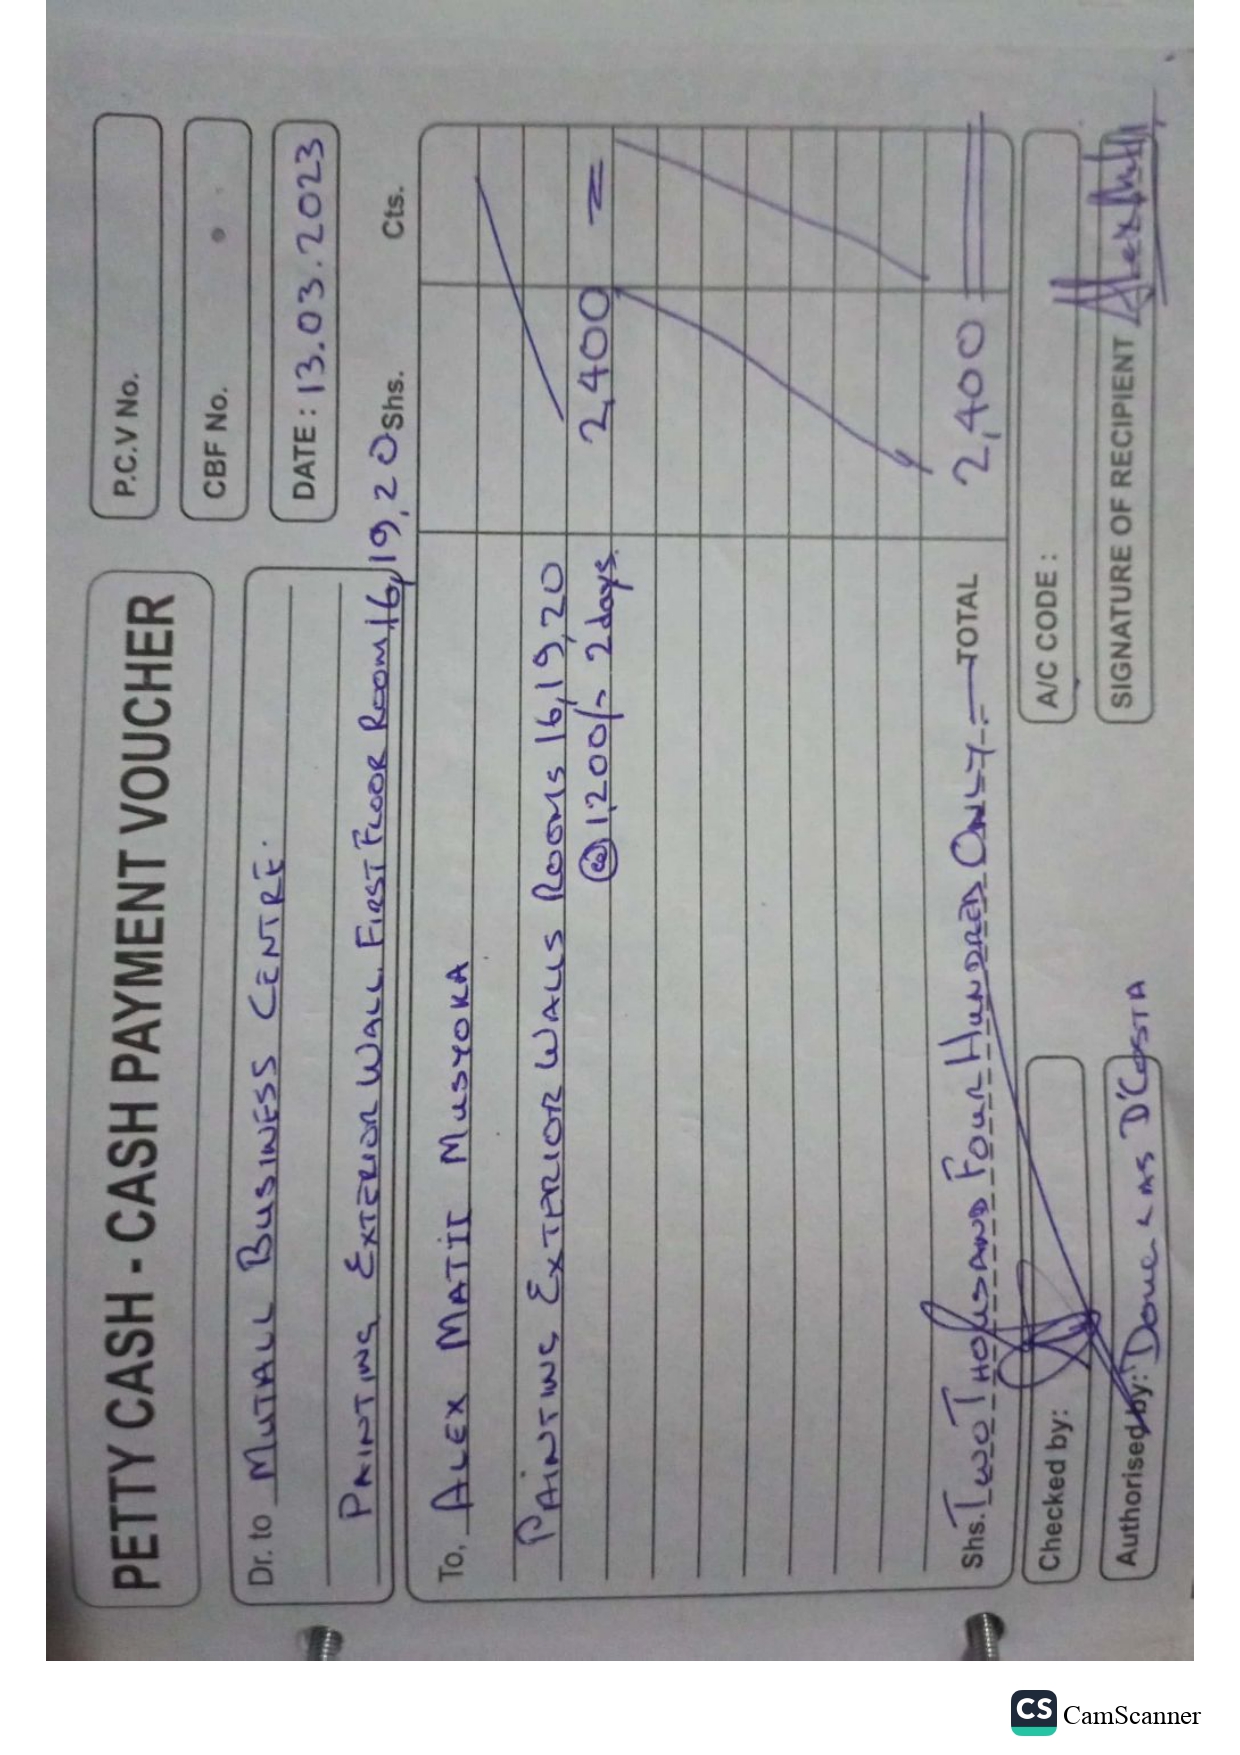 PETTY CASH - CASH PAYMENT VOUCHER
P.C.V No.
CBF No.
DATE : 13.03.2023
Dr. to MUTALL BUSINESS CENTRE.
PAINTING EXTERIOR WALL. FIRST FLOOR ROOM 16, 19, 20
Shs. Cts.
To, ALEX MATII MUSYOKA
PAINTING EXTERIOR WALLS ROOMS 16, 19, 20
@ 1,200/- 2 days. 2,400 =
Shs. TWO THOUSAND FOUR HUNDRED ONLY. — TOTAL 2,400
Checked by:
A/C CODE :
Authorised by: D'COSTA
SIGNATURE OF RECIPIENT
CS CamScanner